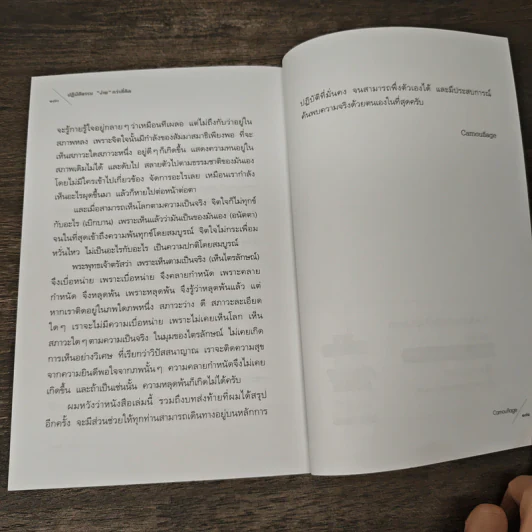 ปฏิบัติธรรม "ง่าย" กว่าที่คิด
จะรู้กายรู้ใจอยู่กลายๆ ว่าเหมือนทีเผลอ แต่ไม่ถึงกับว่าอยู่ใน
สภาพหลง เพราะจิตใจนั้นมีกำลังของสัมมาสมาธิเพียงพอ ที่จะ
เห็นสภาวะใดสภาวะหนึ่ง อยู่ดีๆ ก็เกิดขึ้น แสดงความทนอยู่ใน
สภาพเดิมไม่ได้ และดับไป สลายตัวไปตามธรรมชาติของมันเอง
โดยไม่มีใครเข้าไปเกี่ยวข้อง จัดการอะไรเลย เหมือนเรากำลัง
เห็นอะไรผุดขึ้นมา แล้วก็หายไปต่อหน้าต่อตา
และเมื่อสามารถเห็นโลกตามความเป็นจริง จิตใจก็ไม่ทุกข์
กับอะไร (เบิกบาน) เพราะเห็นแล้วว่ามันเป็นของมันเอง (อนัตตา)
จนในที่สุดเข้าถึงความพ้นทุกข์โดยสมบูรณ์ จิตใจไม่กระเพื่อม
หวั่นไหว ไม่เป็นอะไรกับอะไร เป็นความปกติโดยสมบูรณ์
พระพุทธเจ้าตรัสว่า เพราะเห็นตามเป็นจริง (เห็นไตรลักษณ์)
จึงเบื่อหน่าย เพราะเบื่อหน่าย จึงคลายกำหนัด เพราะคลาย
กำหนัด จึงหลุดพ้น เพราะหลุดพ้น จึงรู้ว่าหลุดพ้นแล้ว แต่
หากเราติดอยู่ในภพใดภพหนึ่ง สภาวะว่าง ดี สภาวะละเอียด
ใดๆ เราจะไม่มีความเบื่อหน่าย เพราะไม่เคยเห็นโลก เห็น
สภาวะใดๆ ตามความเป็นจริง ในมุมของไตรลักษณ์ ไม่เคยเกิด
การเห็นอย่างวิเศษ ที่เรียกว่าวิปัสสนาญาณ เราจะติดความสุข
จากความยินดีพอใจจากภพนั้นๆ ความคลายกำหนัดจึงไม่เคย
เกิดขึ้น และถ้าเป็นเช่นนั้น ความหลุดพ้นก็เกิดไม่ได้ครับ
ผมหวังว่าหนังสือเล่มนี้ รวมถึงบทส่งท้ายที่ผมได้สรุป
อีกครั้ง จะมีส่วนช่วยให้ทุกท่านสามารถเดินทางอยู่บนหลักการ
ปฏิบัติที่มั่นคง จนสามารถพึ่งตัวเองได้ และมีประสบการณ์
ค้นพบความจริงด้วยตนเองในที่สุดครับ
Camouflage
Camouflage